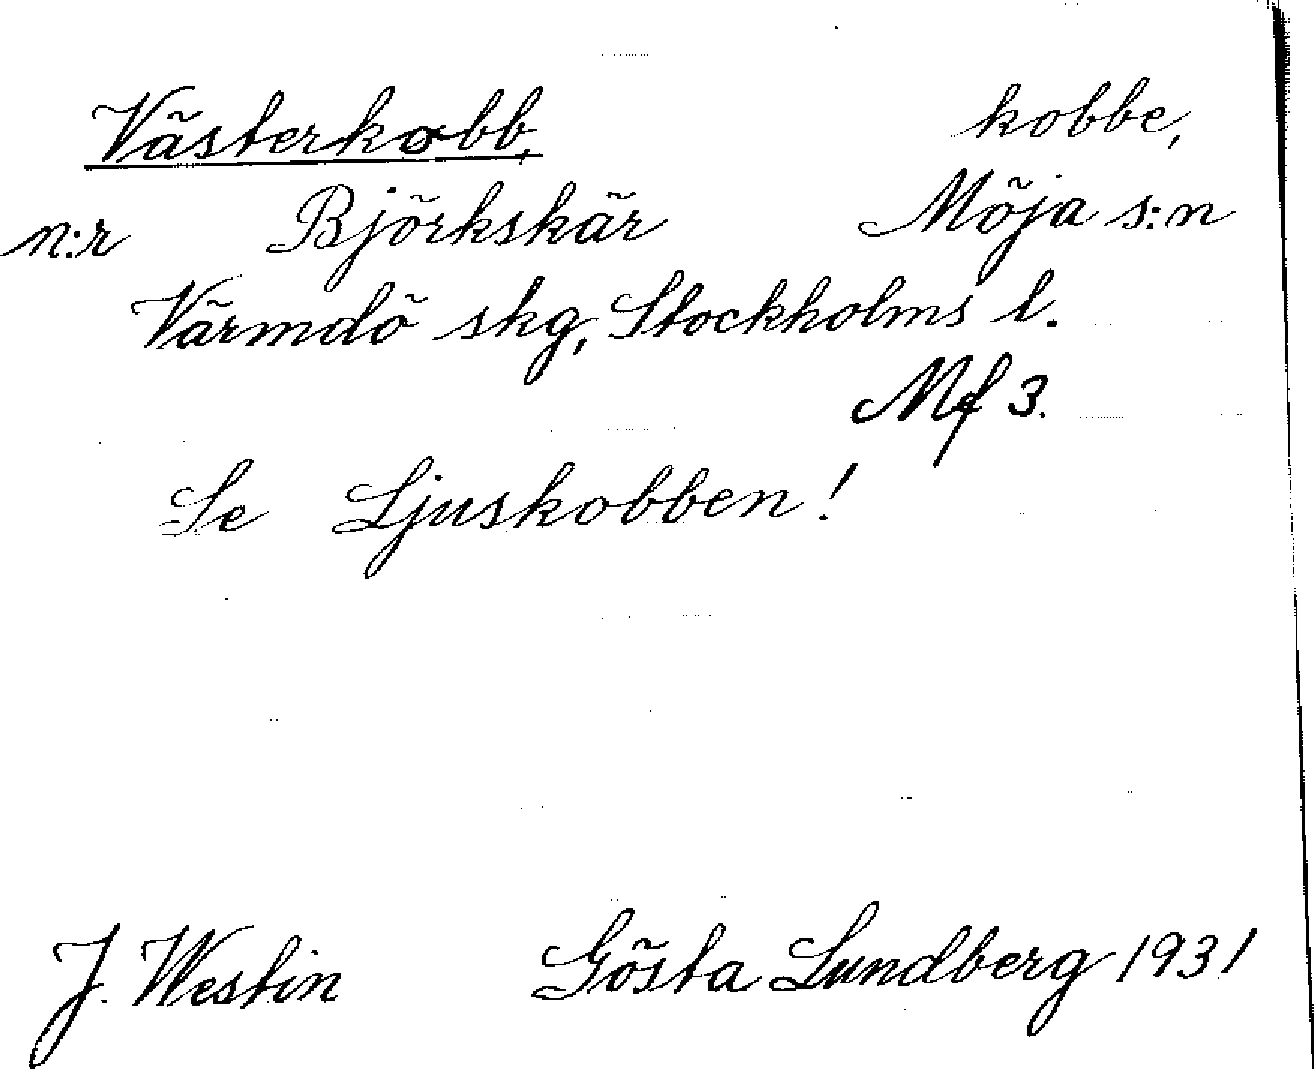 Västerkobb, kobbe,
n:r Björkskär Möja s:n
Värmdö skg, Stockholms l.
Mf 3.
Se Ljuskobben!
J. Westin Gösta Lundberg 1931